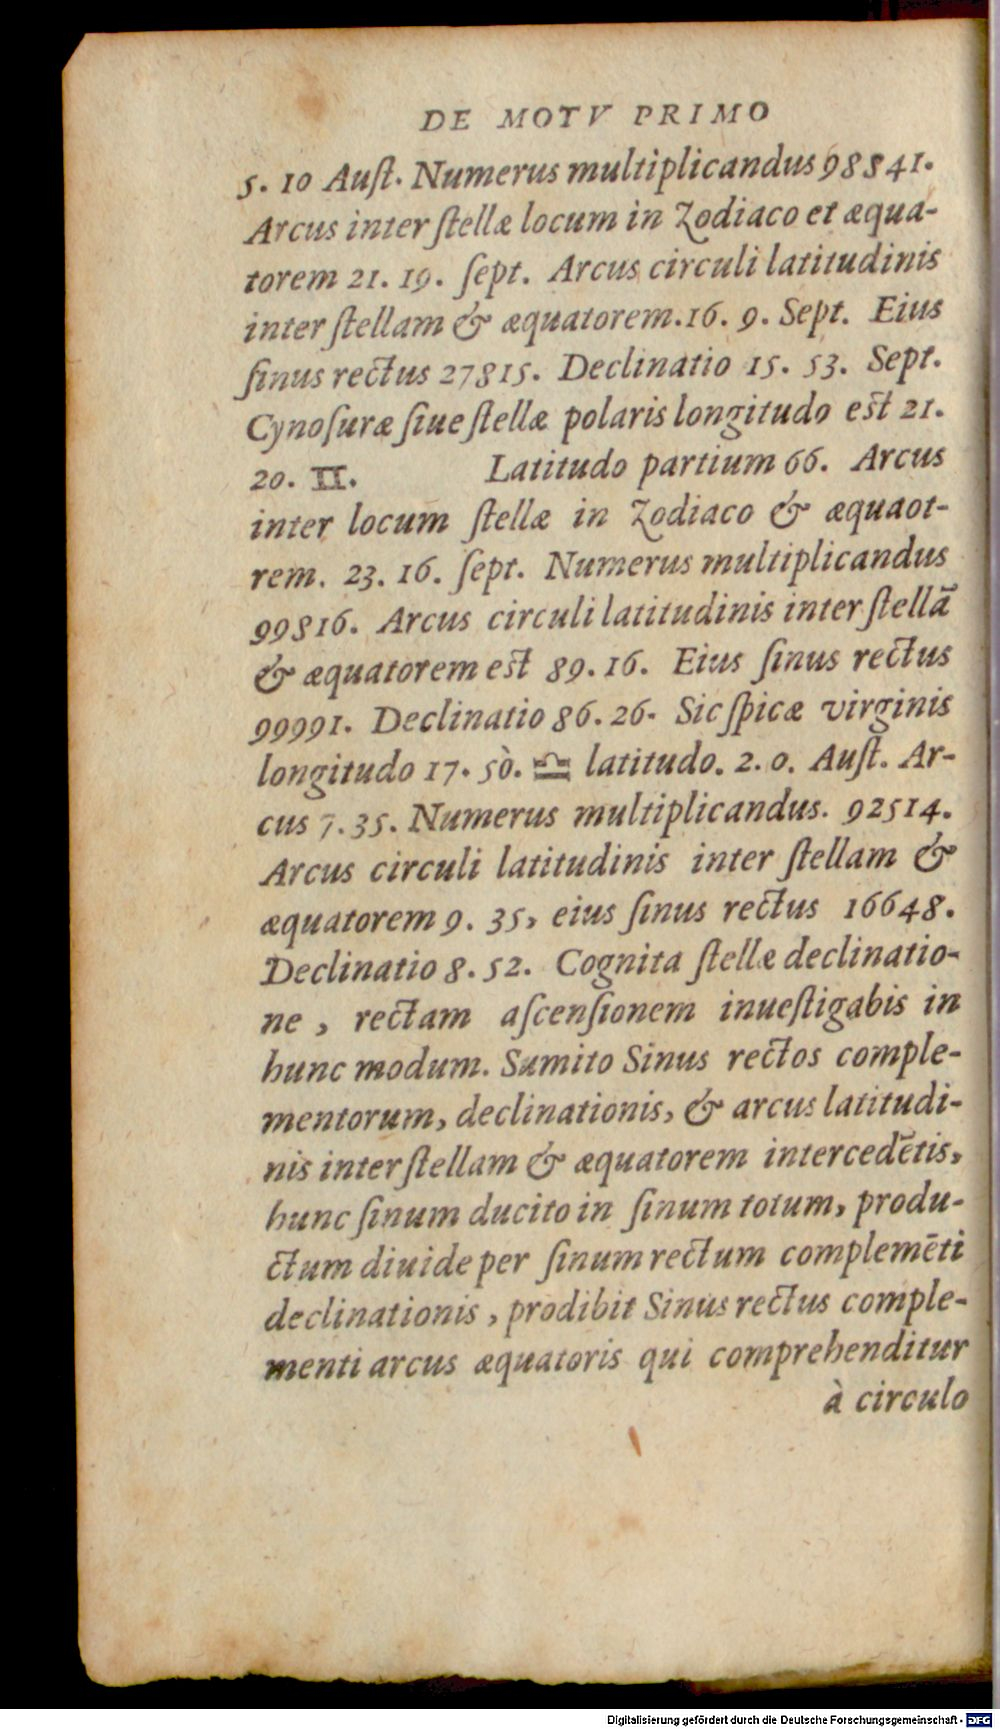 DE MOTV PRIMO
5. 10 Auſt. Numerus multiplicandus 98841.
Arcus inter ſtellæ locum in Zodiaco et æqua-
torem 21. 19. ſept. Arcus circuli latitudinis
inter ſtellam & æquatorem.16. 9. Sept. Eius
ſinus rectus 27815. Declinatio 15. 53. Sept.
Cynoſuræ ſiue ſtellæ polaris longitudo est 21.
20. ♊. Latitudo partium 66. Arcus
inter locum ſtellæ in Zodiaco & æquaot-
rem. 23. 16. ſept. Numerus multiplicandus
99816. Arcus circuli latitudinis inter ſtellã
& æquatorem est 89. 16. Eius ſinus rectus
99991. Declinatio 86. 26. Sic ſpicæ virginis
longitudo 17. 50. ♎ latitudo. 2. 0. Auſt. Ar-
cus 7. 35. Numerus multiplicandus. 92514.
Arcus circuli latitudinis inter ſtellam &
æquatorem 9. 35, eius ſinus rectus 16648.
Declinatio 8. 52. Cognita ſtellæ declinatio-
ne , rectam aſcenſionem inueſtigabis in
hunc modum. Sumito Sinus rectos comple-
mentorum, declinationis, & arcus latitudi-
nis inter ſtellam & æquatorem intercedẽtis,
hunc ſinum ducito in ſinum totum, produ-
ctum diuide per ſinum rectum complemẽti
declinationis , prodibit Sinus rectus comple-
menti arcus æquatoris qui comprehenditur
à circulo
Digitalisierung gefördert durch die Deutsche Forschungsgemeinschaft - DFG